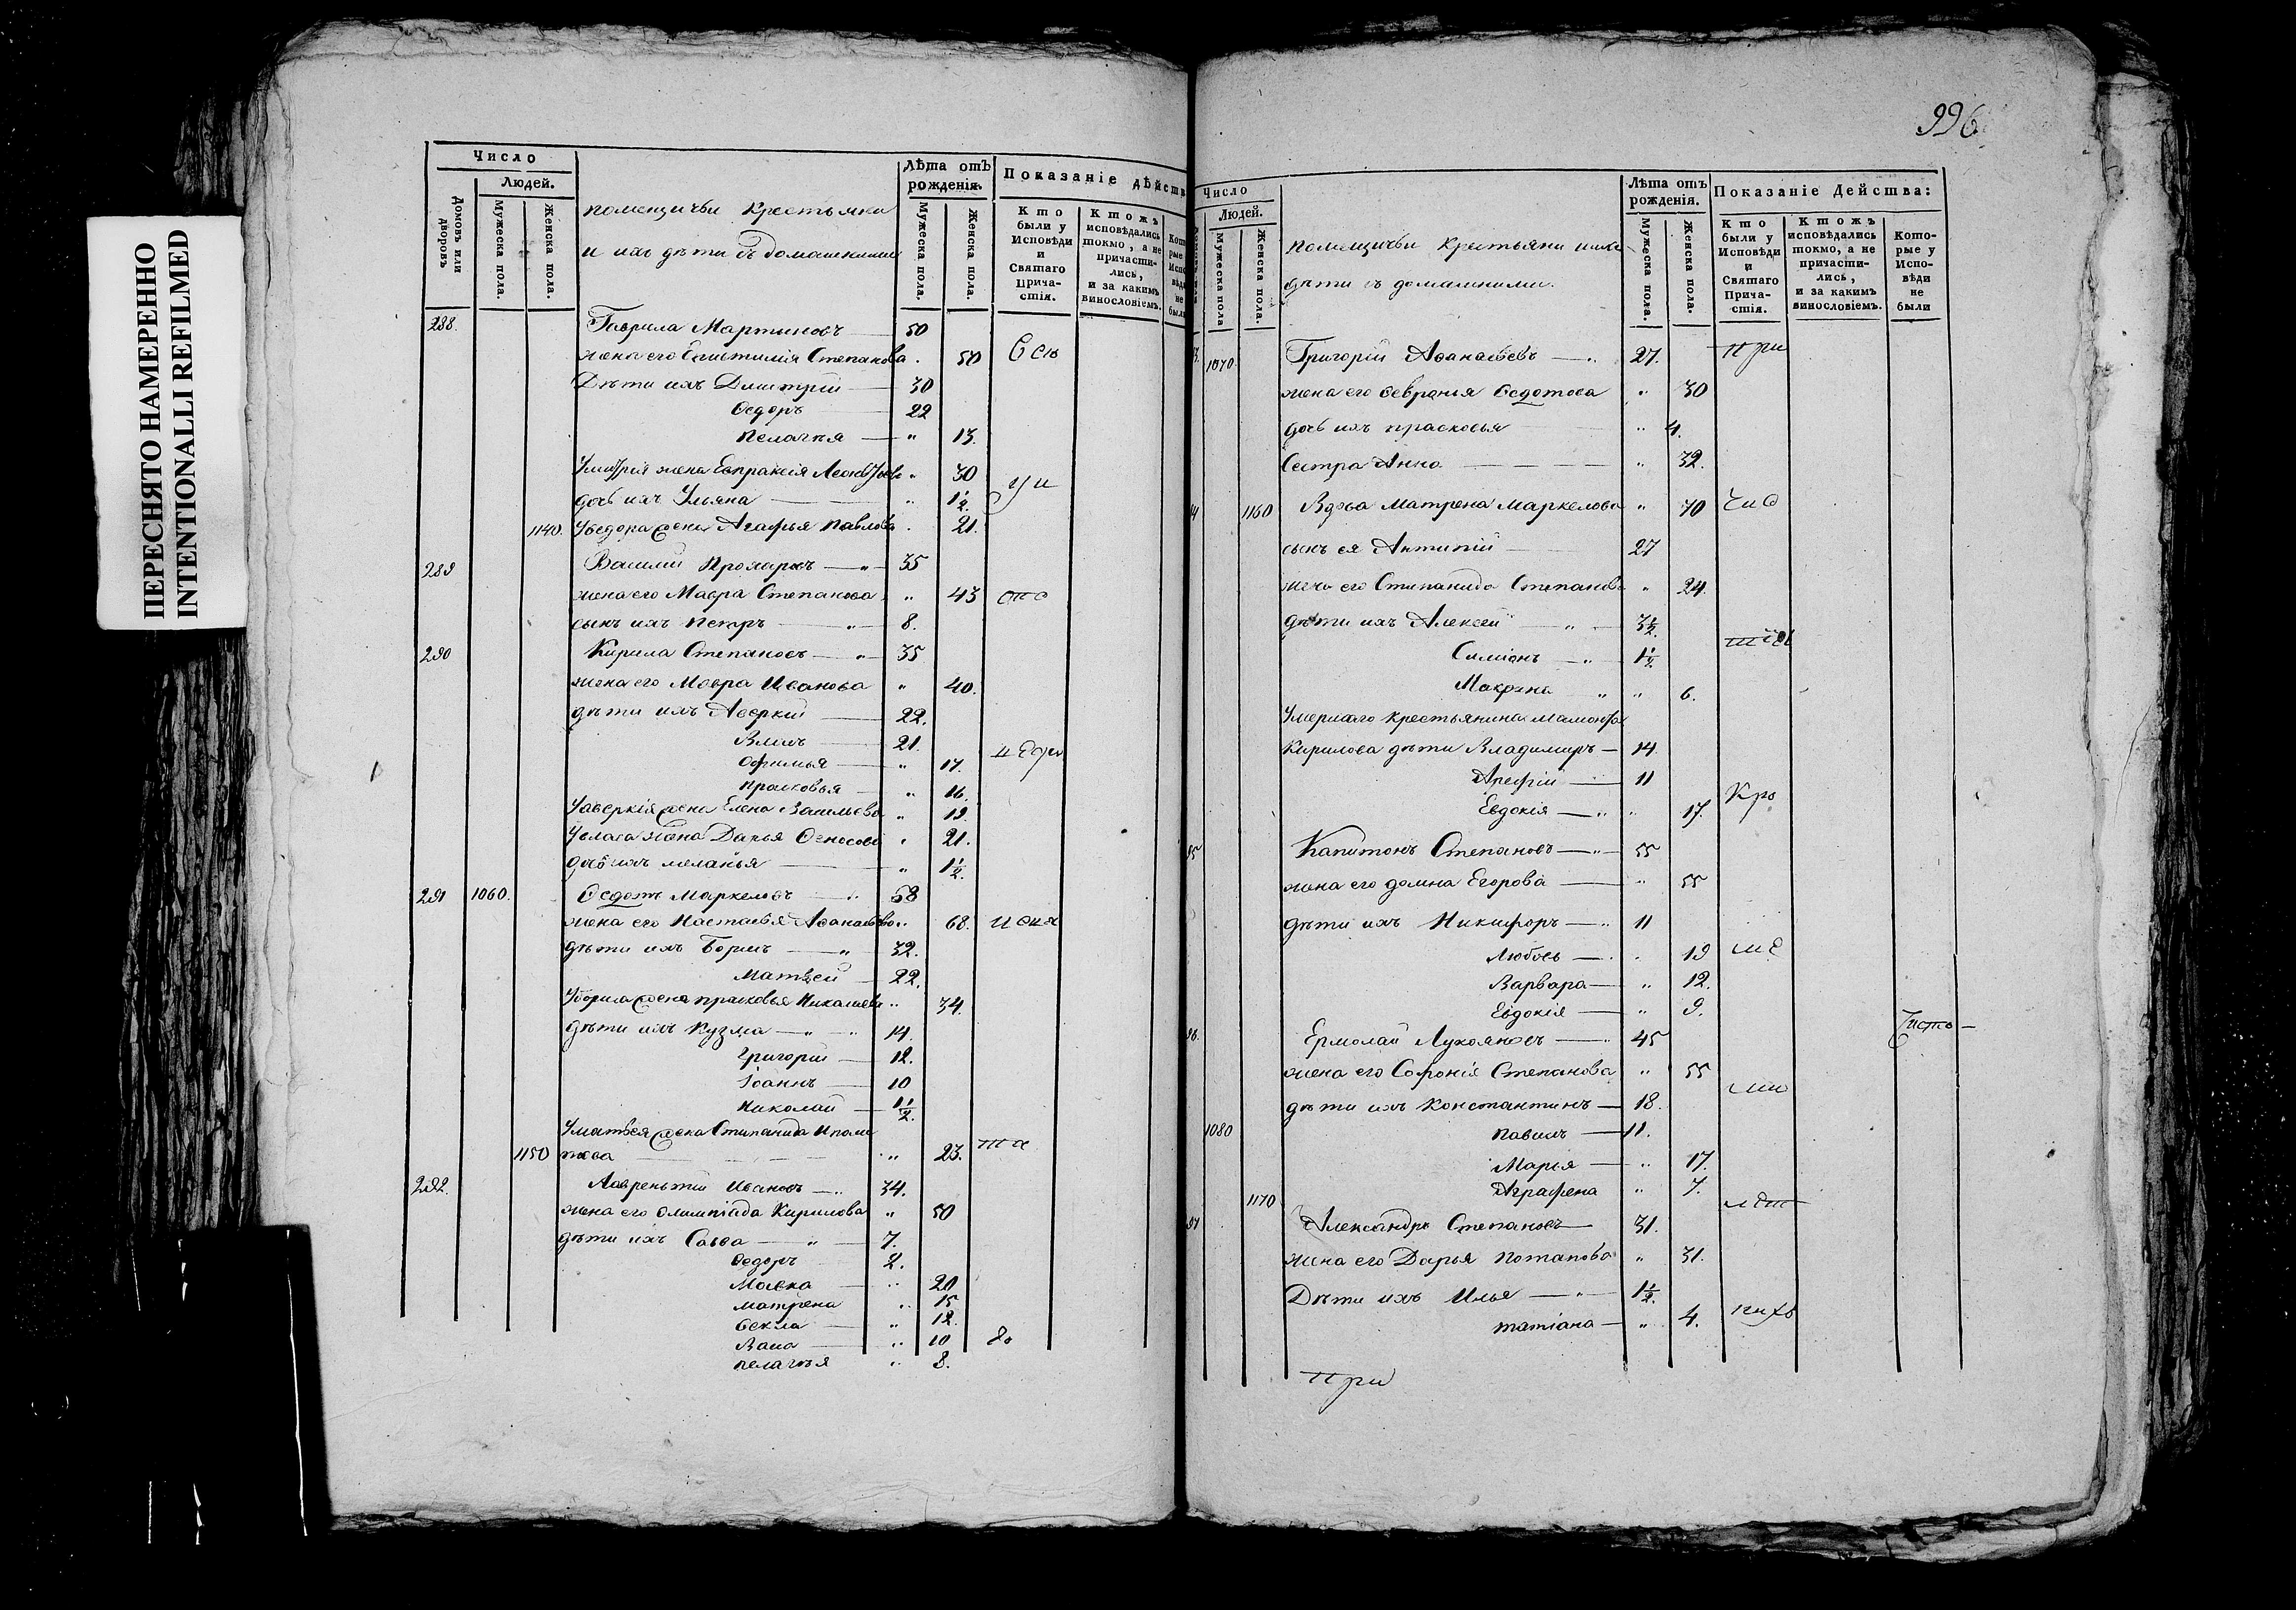 ПЕРЕСНЯТО НАМЕРЕННО
INTENTIONALLI REFILMED
Число
Людей.
Домовъ или дворовъ
Мужеска пола.
Женска пола.
помещичьи Крестьяна
и ихъ дѣти съ домашними
Лѣта отъ
рожденія.
Мужеска пола.
Женска пола.
Показаніе дѣйств
Кто
были у
Исповѣди
и
Святаго
Прича-
стія.
Ктожъ
исповѣдались
токмо, а не
причасти-
лись,
и за какимъ
винословіемъ.
288. Гаврила Мартиновъ 50
жена его Степанова 50
Дѣти ихъ Дмитрій 30
Ѳедоръ 22
пелагѣя 13.
жена Евпраксія 30
дочь ихъ Ульяна 1 1/2.
1140. Уѳедора жена Агафья Павлова 21.
289 Василий Прохоровъ 35
жена его Мавра Степанова 43
сынъ ихъ Петръ 8.
290 Кирила Степановъ 35
жена его Мавра Иванова 40.
дѣти ихъ Аверкій 22.
Власъ 21.
Офимья 17.
прасковья 16.
Уаверкія жена Елена Васильева 19.
Увласа жена Дарья 21.
дочь ихъ меланья 1 1/2.
291 1060. Ѳедотъ Маркеловъ 68
жена его Настасья Аѳанасьева 68.
дѣти ихъ Борисъ 32.
Матвей 22.
Убориса жена прасковья Николаева 34.
дѣти ихъ Кузма 14.
Григорій 12.
Іоаннъ 10
Николай 1 1/2.
Уматвея жена Стипанида
1150 това 23.
292. Лаврентій Ивановъ 34.
жена его Олимпіада Кирилова 50
дѣти ихъ Савва 7.
Ѳедоръ 2.
20
матрена 15
Ѳекла 12.
10
пелагѣя 8.
996
Число
Людей.
Мужеска пола
Женска пола.
помещичьи крестьяни иихъ
дѣти съ домашними.
Лѣта отъ
рожденія.
Мужеска пола.
Женска пола.
Показаніе Действа:
Кто
были у
Исповѣди
и
Святаго
Прича-
стія.
Ктожъ
исповѣдались
токмо, а не
причасти-
лись,
и за какимъ
винословіемъ.
Кото-
рые у
Испо-
вѣди
не
были
1070 Григорій Аѳанасьевъ 27. при
жена его Ѳедотова 30
дочь ихъ прасковья 4.
Сестра Анна 32.
1160 Вдова Матрена Маркелова 70
сынъ ея Антипій 27
жена его Стипанида Степанова 24.
дѣти ихъ Алексей 3 1/2.
Симіонъ 1 1/2
Макрина 6.
Умершаго крестьянина
Кирилова дѣти Владимиръ 14
Арефій 11
Евдокія 17. Кро
95 Капитонъ Степановъ 55
жена его домна Егорова 55
дѣти ихъ Никифоръ 11
Любовь 19
Варвара 12.
Евдокія 9.
96. Ермолай Лукояновъ 45
жена его Софонія Степанова 55
дѣти ихъ Константинъ 18.
1080 павилъ 11.
Марья 17.
1170 Аграфена 7.
97 Александръ Степановъ 31.
жена его Дарья Потапова 31.
Дѣти ихъ Илья 1 1/2.
татіана 4.
при